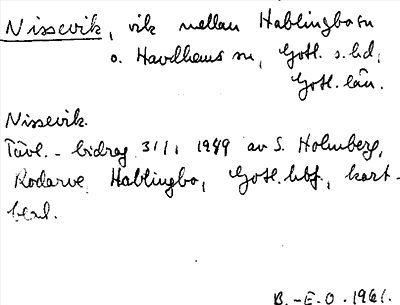 Nissevik, vik mellan Hablingbo sn
o. Havdhems sn, Gotl. s. hd,
Gotl. län.
Nissevik.
Tävl.-bidrag 31/1 1949 av S. Holmberg,
Rodarve, Hablingbo, Gotl. hbf, kort-
B.-E.O. 1961.